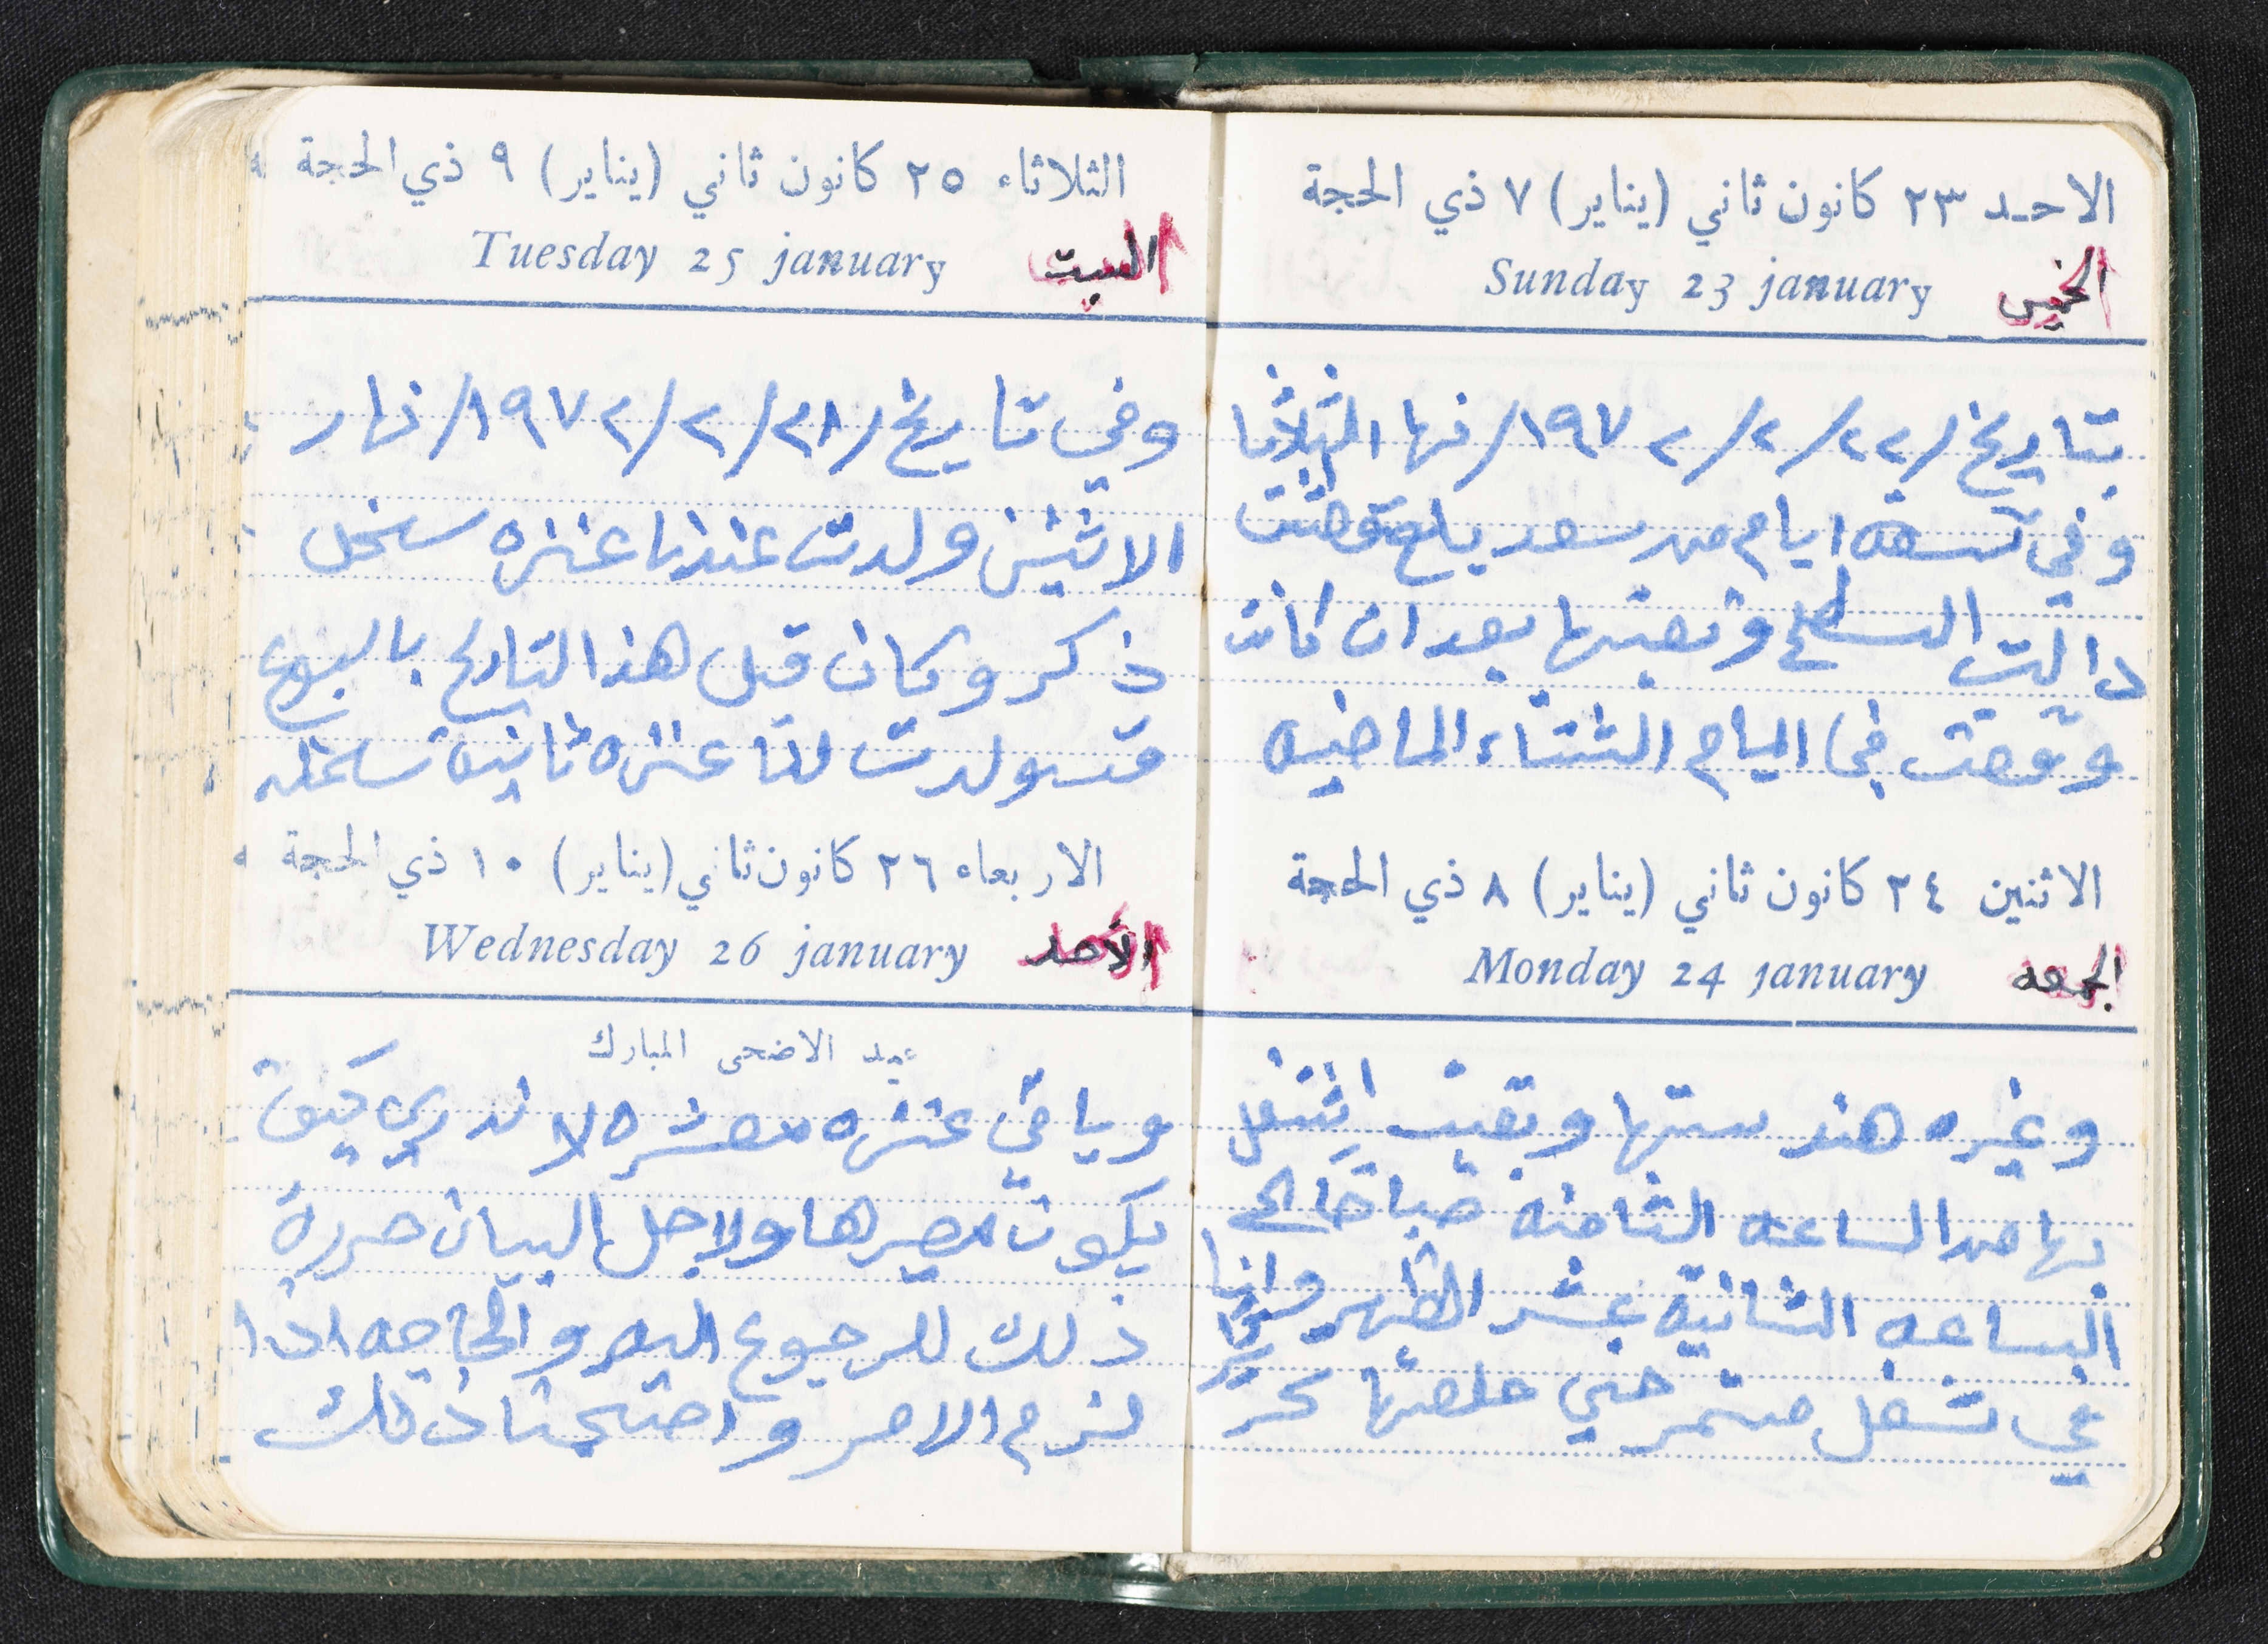 الاحد ٢٣ كانون ثاني (يناير) ٧ ذي الحجة
الخميس Sunday 23 january
بتاريخ /٢٢/٢/١٩٧٢/ نها الثلاثا
وفي تسعه ايام من سعد بلع وقعت
دالية السطح وبعتها بعد ان كانت
وقعت في اليام الشتاء الماضيه
الاثنين ٢٤ كانون ثاني (يناير) ٨ ذي الحجة
الجمعه Monday 24 january
وغيره هندستها وبقيت اشتغل
بها من الساعه الثامنه صباحًا الى
الساعه الثانية عشر الظهر وانا
في شغل مستمر حتي خلصتها
الثلاثاء ٢٥ كانون ثاني (يناير) ٩ ذي الحجة
السبت Tuesday 25 january
وفي تاريخ /٢١/٢/١٩٧٢/ نهار
الاثنين ولدت عندنا عنزه سخل
ذكر وكان قبل هذا التاريخ
ولدت لنا عنزه ثانية سخله
الاربعاء ٢٦ كانون ثاني (يناير) ١٠ ذي الحجة
الأحد Wednesday 26 january
عيد الاضحى المبارك
وباقي عنزه معشره لا ندري كيف
يكون مصيرها ولاجل البيان حررة
ذلك للرجوع اليه والحاجه اذا
لزم الامر واحتجنا ذلك